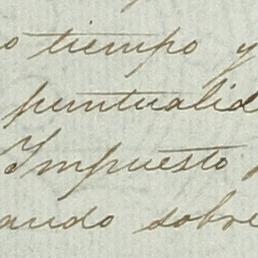 o tiempo y
puntualid
Impuesto
ando sobre